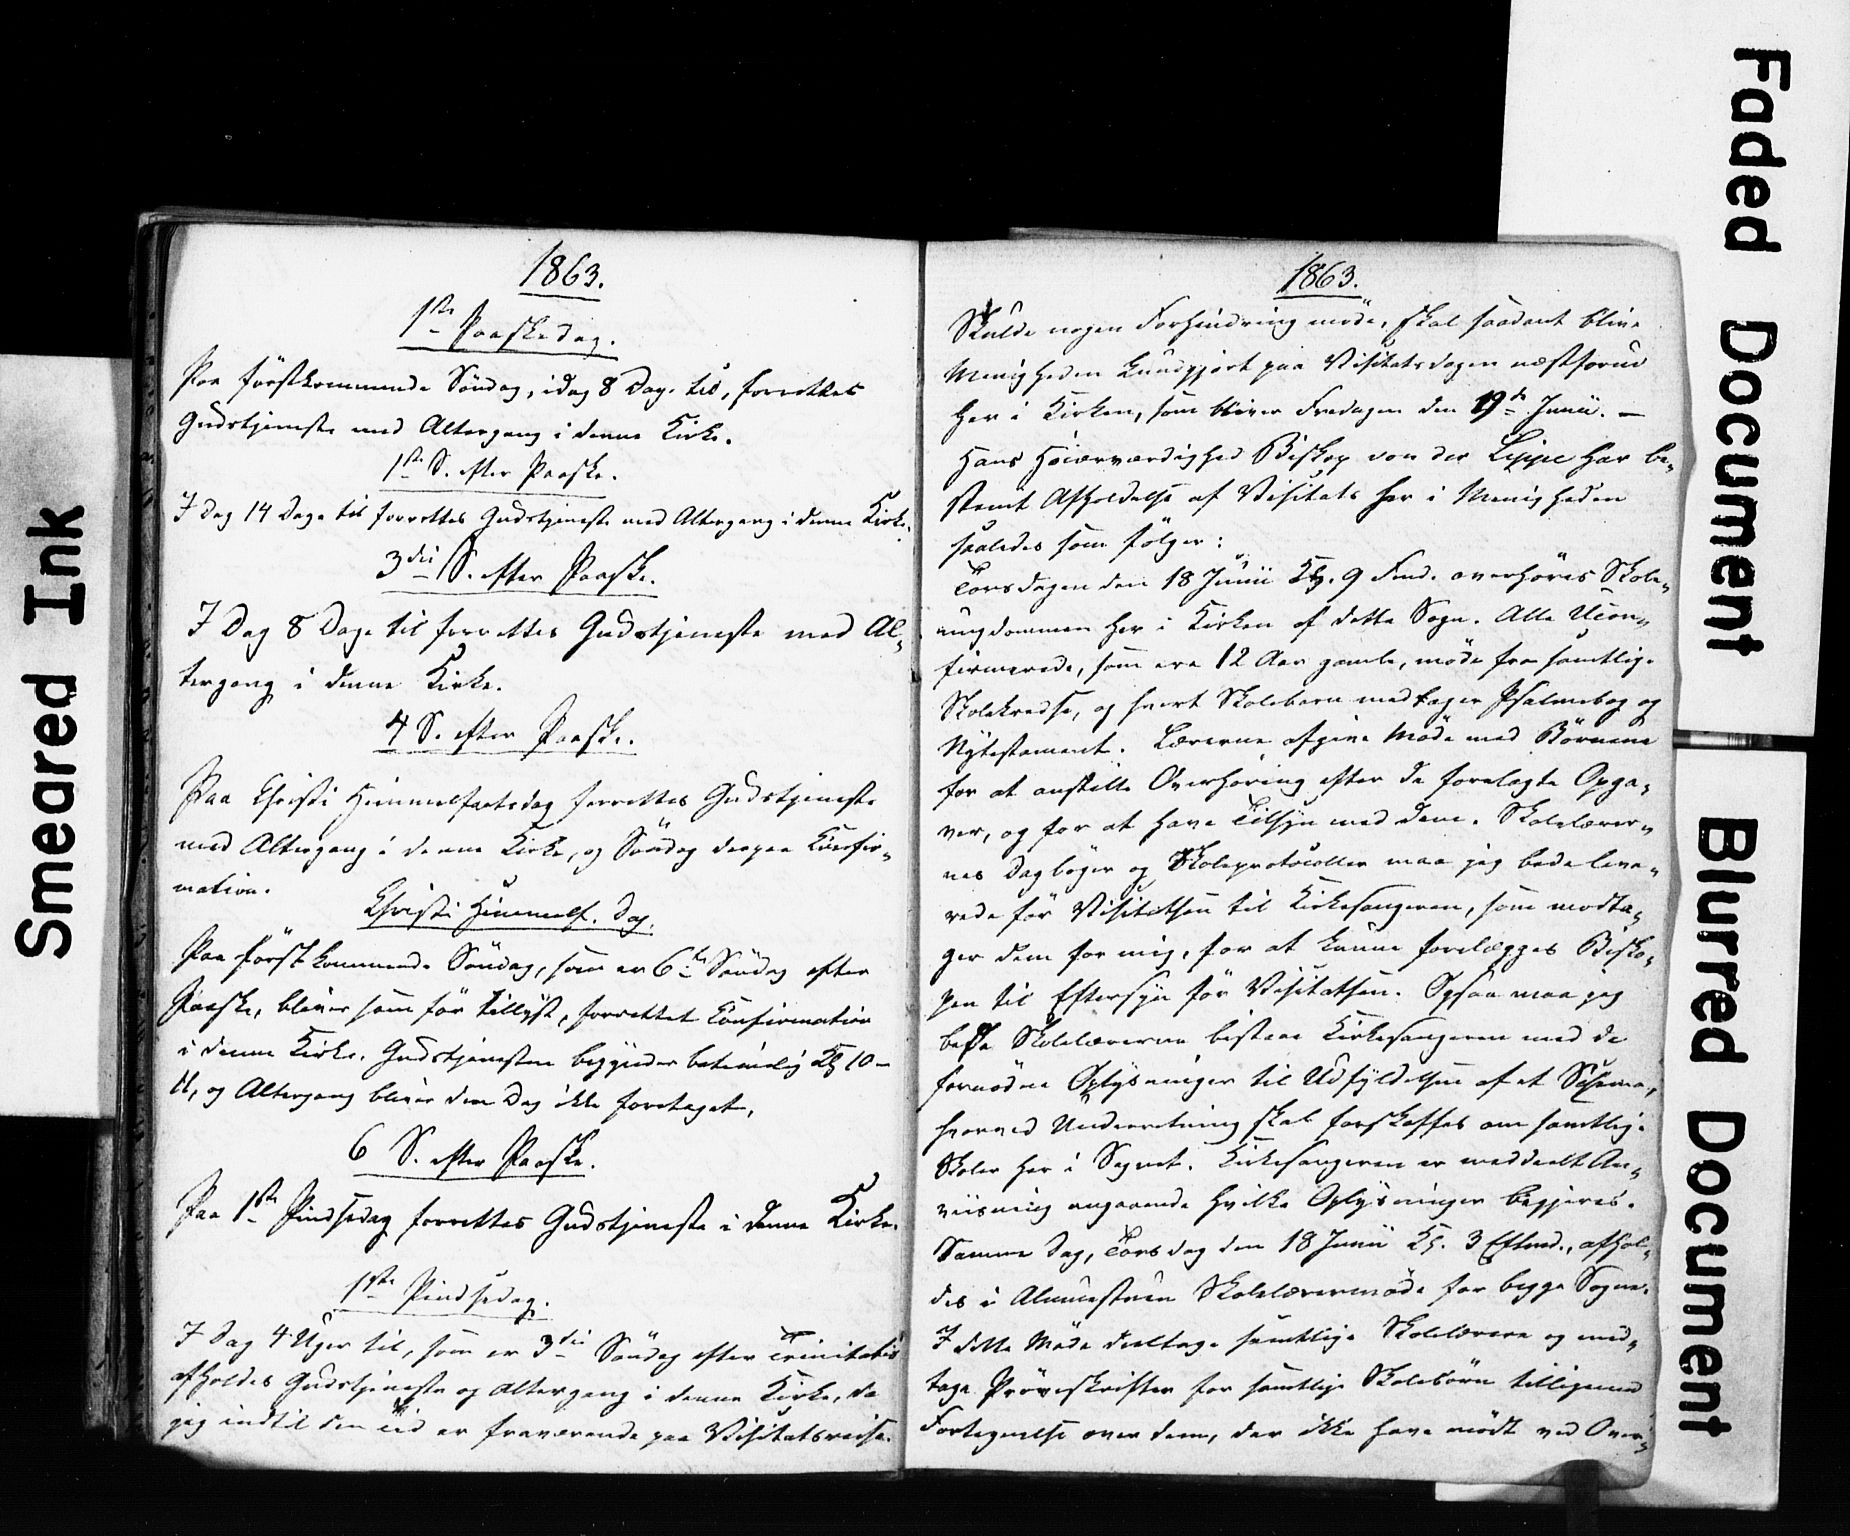 1863.
1ste Paaskedag.
Paa förstkommende Söndag, idag 8 Dage til, forrettes
Gudstjeneste med Altergang i denne Kirke.
1ste S. efter Paaske.
I Dag 14 Dage til forrettes Gudstjeneste med Altergang i denne Kirke.
3die S. efter Paaske.
I Dag 8 Dage til forrettes Gudstjeneste med Al-
tergang i denne Kirke.
4 S. efter Paaske.
Paa Christi Himmelfartsdag forrettes Gudstjeneste
med Altergang i denne Kirke, og Söndag derpaa Confir-
mation.
Christi Himmelf. Dag.
Paa förstkommende Söndag, som er 6te Söndag efter
Paaske, bliver som för tillyst, forrettet Confirmation
i denne Kirke. Gudstjenesten begynder betimelig Kl 10-
11, og Altergang bliver den Dag ikke foretaget.
6 S. efter Paaske.
Paa 1ste Pindsedag forrettes Gudstjeneste i denne Kirke.
1ste Pindsedag.
I Dag 4 Uger til, som er 3die Söndag efter Trinitatis
afholdes Gudstjeneste og Altergang i denne Kirke, da
jeg indtil den Tid er fraværende paa Visitatsreise.
1863.
Skulde nogen Forhindring möde, skal saadant blive
Menigheden kundgjort paa Visitatsdagen næstforud
her i Kirken, som bliver Fredagen den 19de Junii. —
Hans Höiærværdighed Biskop von der Lippe har be-
stemt Afholdelse af Visitats her i Menigheden
saaledes som fölger:
Torsdagen den 18 Junii Kl. 9 Fmd. overhöres Skole-
ungdommen her i Kirken af dette Sogn. Alle Ucon-
firmerede, som ere 12 Aar gamle, möde fra samtlige
Skolekredse, og hvert Skolebarn medtager Psalmebog og
Nytestament. Lærerne afgive Möde med Börnene
for at anstille Overhöring efter de forelagte Opga-
ver, og for at have Tilsyn med dem. Skolelærer-
nes Dagböger og Skoleprotocoller maa jeg bede leve-
rede för Visitatsen til Kirkesangeren, som modta-
ger dem for mig, for at kunne forelægges Bisko-
pen til Eftersyn för Visitatsen. Ogsaa maa jeg
bede Skolelærerne bistaae Kirkesangeren med de
fornödne Oplysninger til Udfyldelsen af et Schema,
hvorved Underretning skal forskaffes om samtlige
Skoler her i Sognet. Kirkesangeren er meddeelt An-
viisning angaaende hvilke Oplysninger begjeres.
Samme Dag, Torsdag den 18 Junii Kl. 3 Eftmd., afhol-
des i Almuestuen Skolelærermöde for begge Sogne.
I dette Möde deeltage samtlige Skolelærere og med-
tage Pröveskrifter for samtlige Skolebörn tilligemed
Fortegnelse over dem, der ikke have mödt ved Over-
Smeared Ink
Faded Document
Blurred Document